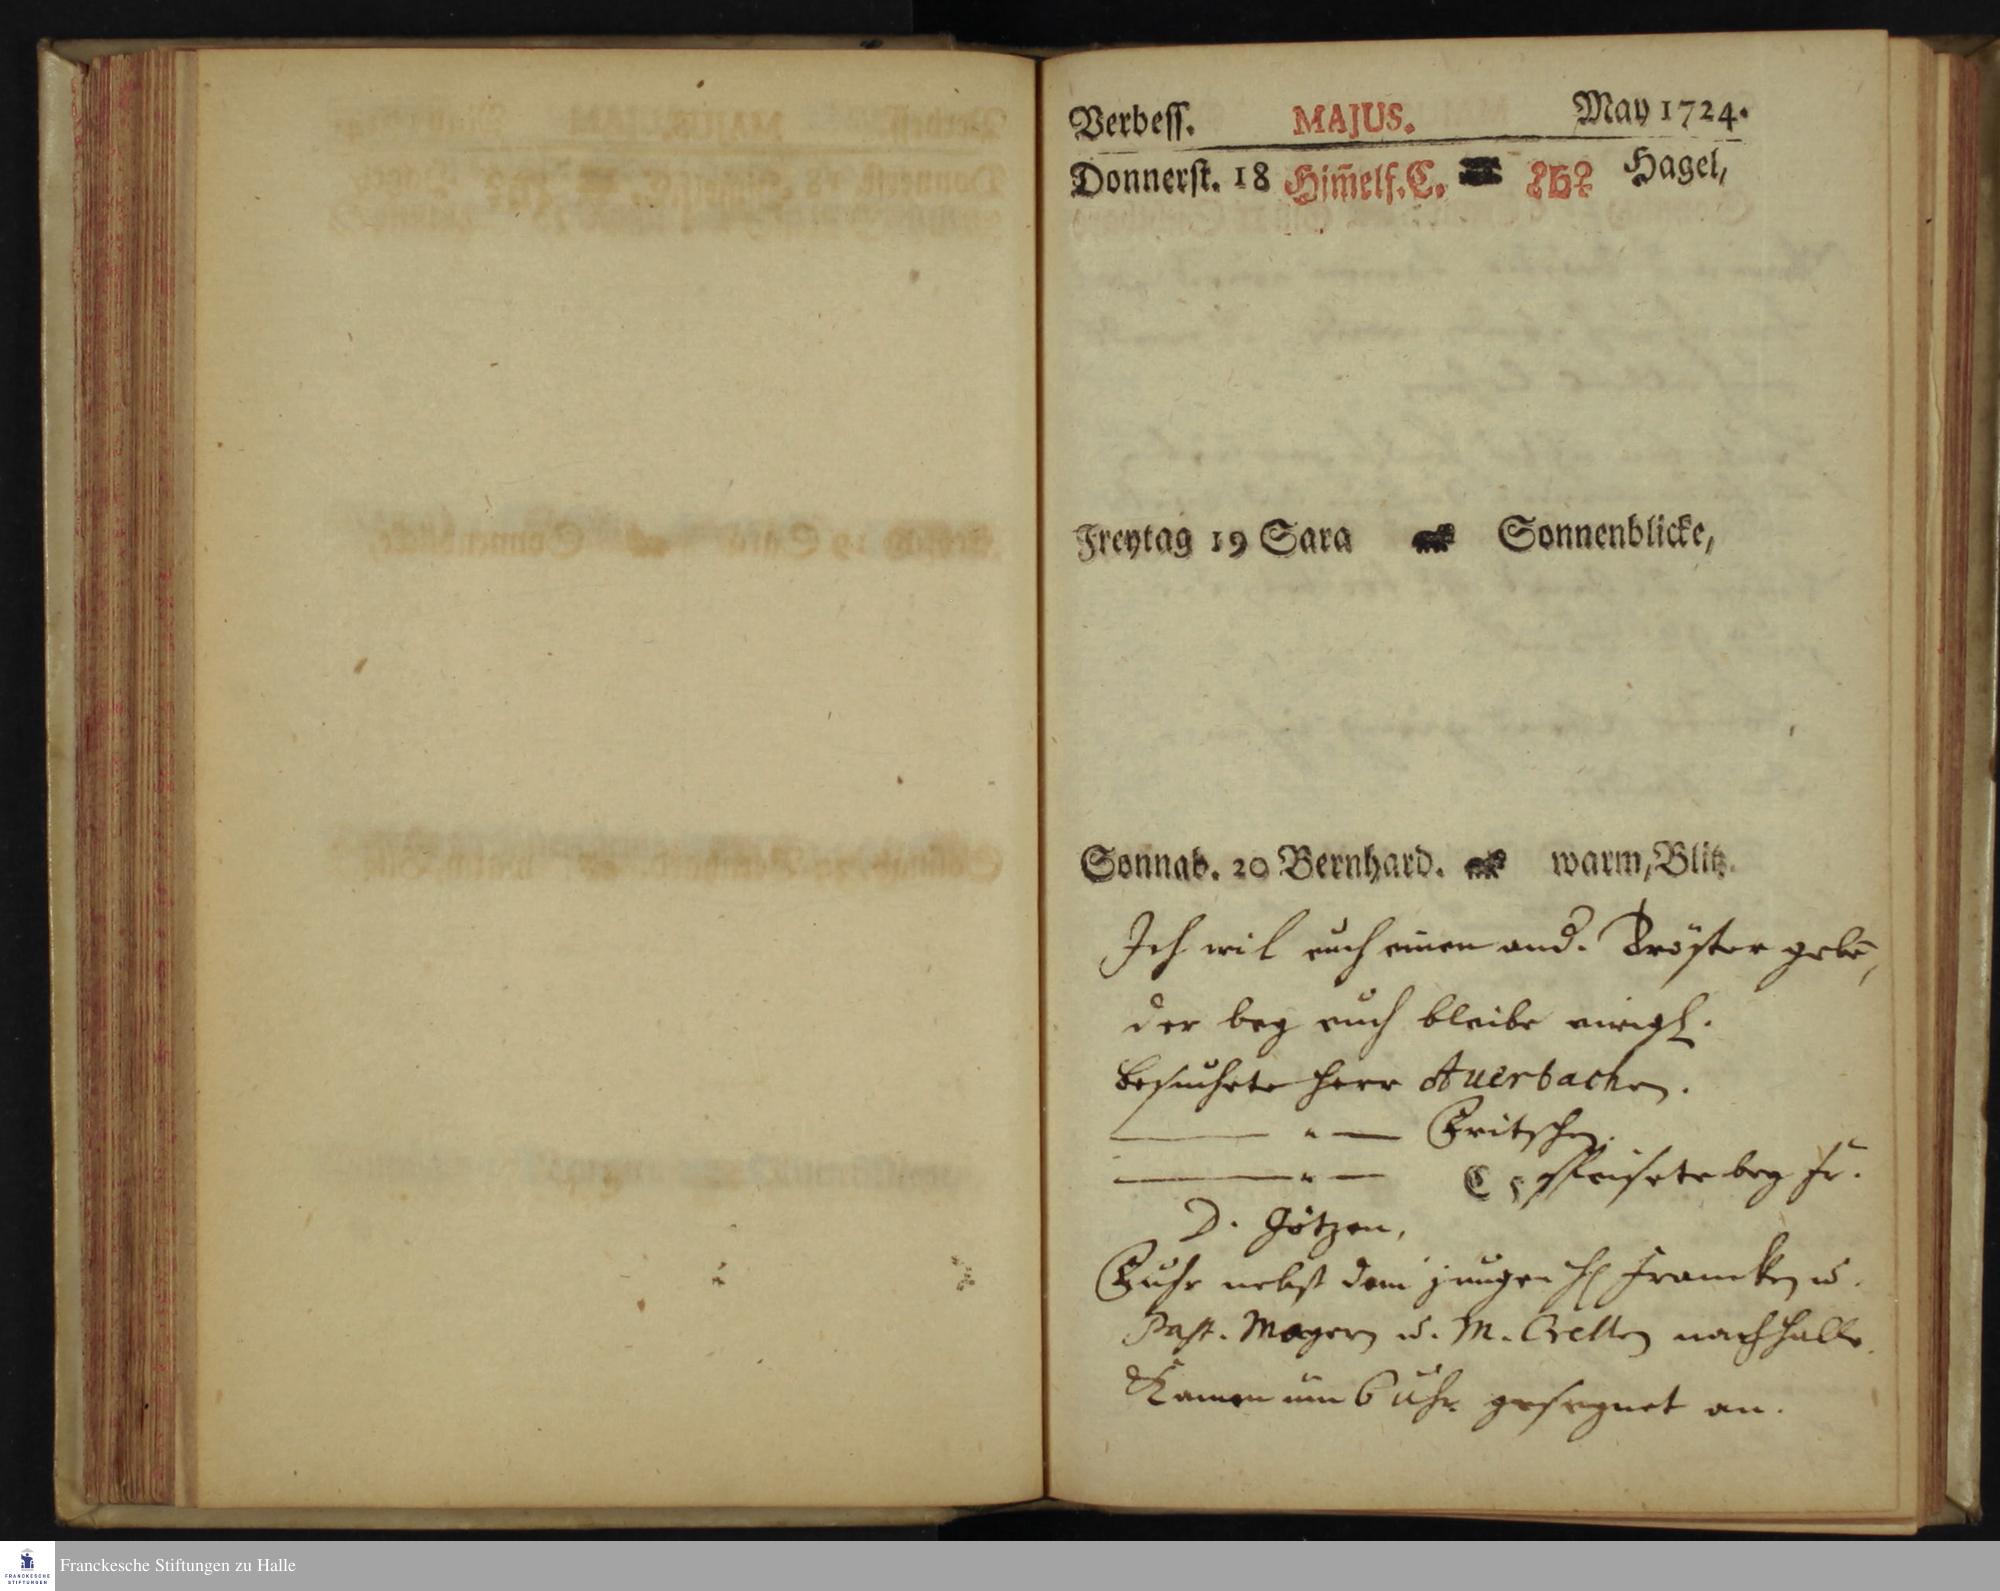 Verbess. MAJUS. May 1724.
Donnerst. 18 Him̃elf. C. Hagel,
Freytag 19 Sara Sonnenblicke,
Sonnab. 20 Bernhard. warm, Blitz.
Ich wil euch einen and. Tröster gebē,
der bey euch bleibe ewigl.
Besuchete Herr Auerbachen.
— " — Fritschen.
— " — speisete bey Hr.
D. Götzen,
Fuhr nebst dem jungen H Francken u.
Past. Mayern u. M. Crellen nach Halle.
Kamen um 6 Uhr gesegnet an.
FRANCKESCHE STIFTUNGEN
Franckesche Stiftungen zu Halle